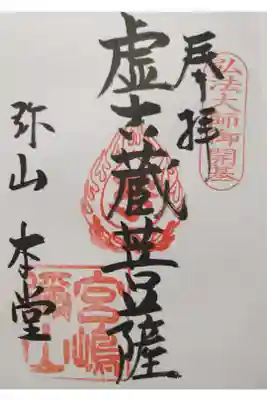 弘法大師御開基
奉拝
虚空蔵菩薩
宮嶋
彌山
弥山 本堂